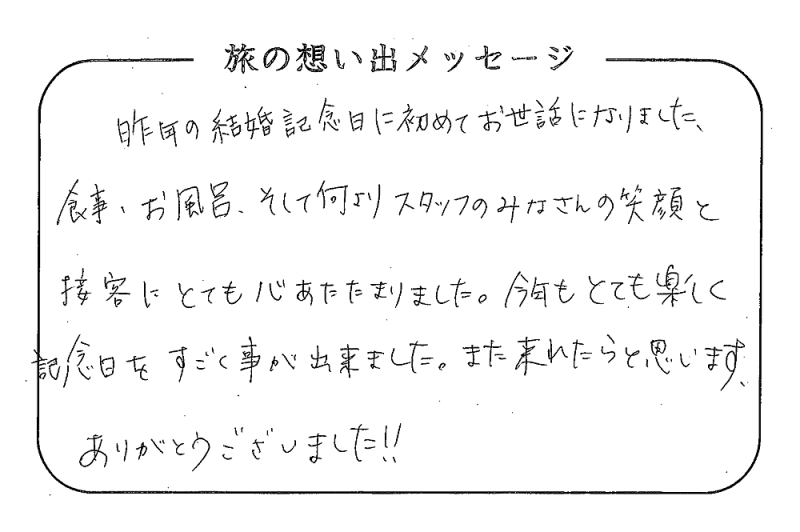 旅の想い出メッセージ
昨年の結婚記念日に初めてお世話になりました、
食事、お風呂、そして何よりスタッフのみなさんの笑顔と
接客にとても心あたたまりました。今年もとても楽しく
記念日をすごく事が出来ました。また来れたらと思います、
ありがとうございました!!